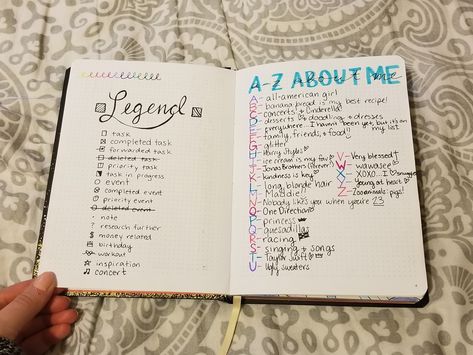 Legend
task
completed task
forwarded task
deleted task
priority task
task in progress
event
completed event
priority event
deleted event
note
research further
$ money related
birthday
workout
inspiration
concert
A-Z ABOUT ME
A- all-american girl
B- banana bread is my best recipe!
C- concerts + Cinderella
D- desserts + doodling + dresses
E- everywhere. I haven't been yet, but it's on my list.
F- family, friends, + food!!
G- glitter
H- Harry Styles
I- ice cream is my fav
J- Jonas Brothers (forever)
K- kindness is key
L- long blonde hair
M- Maddie!!
N- Nobody likes you when you're 23
O- One Direction
P- princess
Q- quesadillas
R- racing
S- singing + songs
T- Taylor Swift
U- Ugly sweaters
V- Very blessed
W- wawasee
X- XOXO... I snuggles
Y- Young at heart
Z- Zooanimals: pigs!